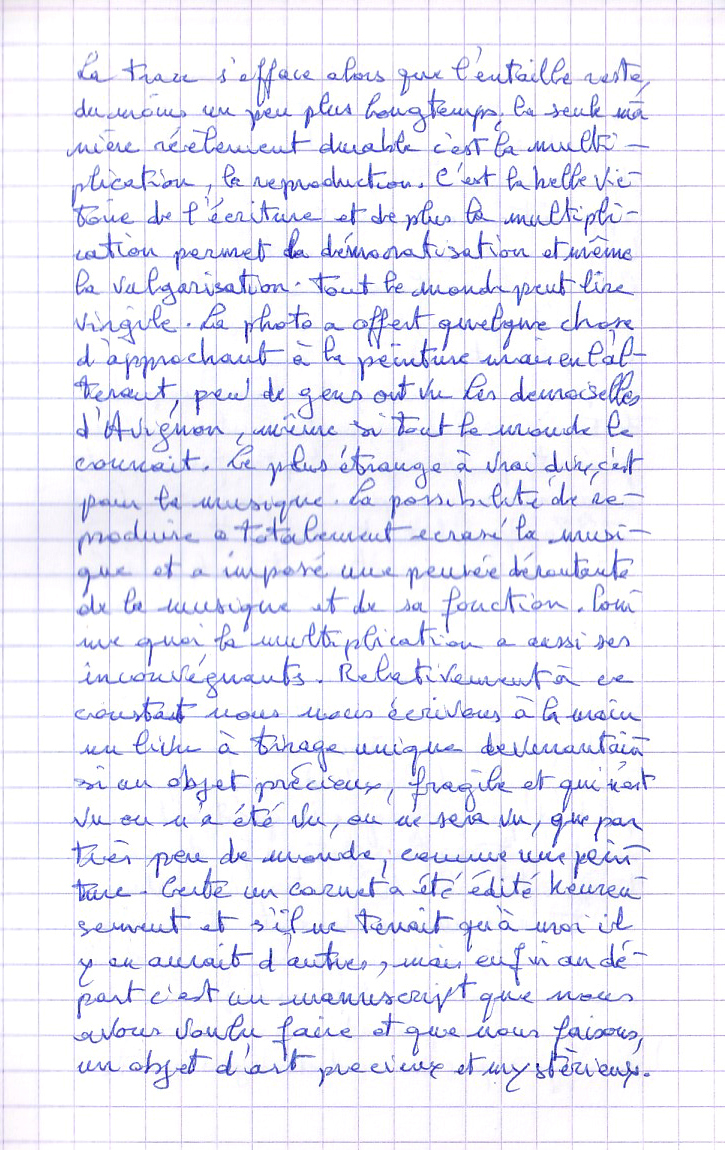 La trace s'efface alors que l'entaille reste,
du moins un peu plus longtemps, la seule ma
nière réellement durable c'est la multi-
plication, la reproduction. C'est la belle vic-
toire de l'écriture et de plus la multipli-
cation permet la démocratisation et même
la vulgarisation. Tout le monde peut lire
virgile. La photo a offert quelque chose
d'approchant à la peinture mais en l'al-
térant, peu de gens ont vu les demoiselles
d'Avignon, même si tout le monde le
connait. Le plus étrange à vrai dire, c'est
pour la musique. La possibilité de re-
produire a totalement ecrasé la musi-
que et a imposé une pensée déroutante
de la musique et de sa fonction. Com
me quoi la multiplication a aussi ses
inconvégnants. Relativement à ce
constat nous nous écrivons à la main
un livre à tirage unique devenant ain
si un objet précieux, fragile et qui n'est
vu ou n'a été vu, ou ne sera vu, que par
très peu de monde, comme une pein-
ture. Certe un carnet a été édité heureu
sement et s'il ne tenait qu'à moi il
y en aurait d'autres, mais enfin au dé-
part c'est un manuscript que nous
avons voulu faire et que nous faisons,
un objet d'art precieux et mystérieux.